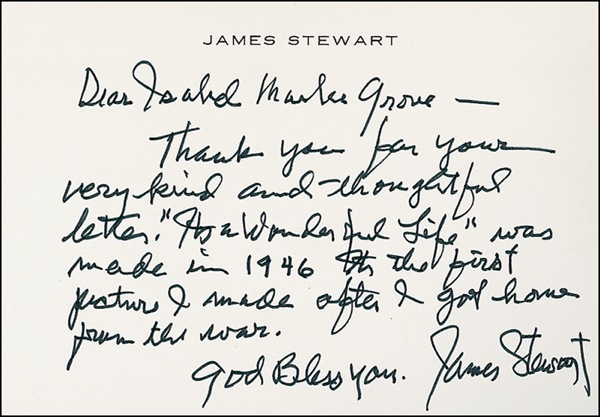 JAMES STEWART
Dear Isabel Grove —
Thank you for your
very kind and thoughtful
letter. "Its a Wonderful Life" was
made in 1946 the first
picture I made after I got home
from the war.
God Bless you. James Stewart